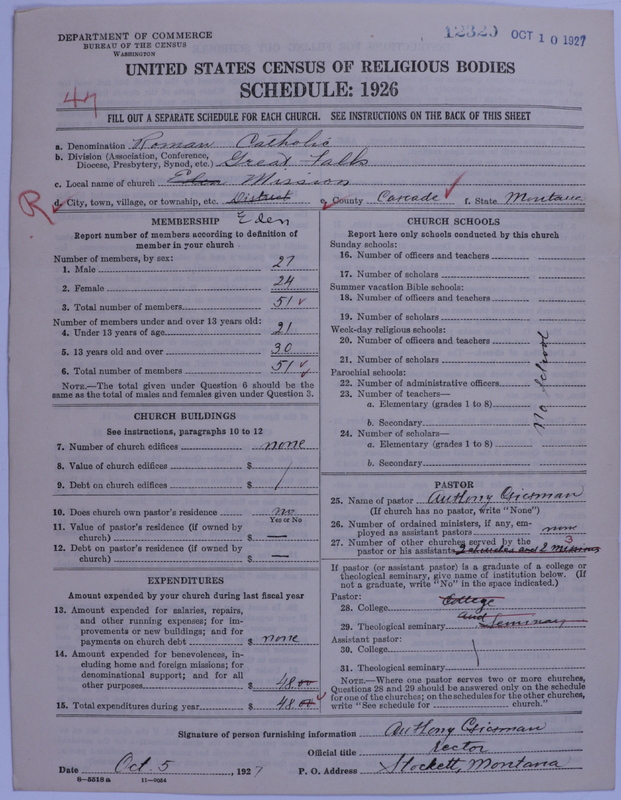 12320 OCT 10 1927
DEPARTMENT OF COMMERCE
BUREAU OF THE CENSUS
WASHINGTON
UNITED STATES CENSUS OF RELIGIOUS BODIES
SCHEDULE: 1926
47
FILL OUT A SEPARATE SCHEDULE FOR EACH CHURCH. SEE INSTRUCTIONS ON THE BACK OF THIS SHEET
a. Denomination Roman Catholic
b. Division (Association, Conference, Diocese, Presbytery, Synod, etc.) Great Falls
c. Local name of church Eden Mission
R d. City, town, village, or township, etc. District e. County Cascade f. State Montana
Eden
MEMBERSHIP
Report number of members according to definition of
member in your church
Number of members, by sex:
1. Male 27
2. Female 24
3. Total number of members 51
Number of members under and over 13 years old:
4. Under 13 years of age 21
5. 13 years old and over 30
6. Total number of members 51
NOTE.—The total given under Question 6 should be
same as the total of males and females given under Question 3.
CHURCH BUILDINGS
See instructions, paragraphs 10 to 12
7. Number of church edifices none
8. Value of church edifices $
9. Debt on church edifices $
10. Does church own pastor's residence no
Yes or No
11. Value of pastor's residence (if owned by
church) $ —
12. Debt on pastor's residence (if owned by
church) $ —
EXPENDITURES
Amount expended by your church during last fiscal year
13. Amount expended for salaries, repairs,
and other running expenses; for im-
provements or new buildings; and for
payments on church debt $ none
14. Amount expended for benevolences, in-
cluding home and foreign missions; for
denominational support; and for all
other purposes $ 48.00
15. Total expenditures during year $ 48.00
CHURCH SCHOOLS
Report here only schools conducted by this church
Sunday schools:
16. Number of officers and teachers
17. Number of scholars
Summer vacation Bible schools:
18. Number of officers and teachers
19. Number of scholars
Week-day religious schools:
20. Number of officers and teachers
21. Number of scholars
Parochial schools:
22. Number of administrative officers
23. Number of teachers—
a. Elementary (grades 1 to 8)
b. Secondary
24. Number of scholars—
a. Elementary (grades 1 to 8)
b. Secondary
No School
PASTOR
25. Name of pastor Anthony
(If church has no pastor, write "None")
26. Number of ordained ministers, if any, em-
ployed as assistant pastors none
27. Number of other churches served by the 3
pastor or his assistants 2 churches and 2 missions
If pastor (or assistant pastor) is a graduate of a college or
theological seminary, give name of institution below. (If
not a graduate, write "No" in the space indicated.)
Pastor:
28. College College
29. Theological seminary and Seminary
Assistant pastor:
30. College
31. Theological seminary
NOTE.—Where one pastor serves two or more churches,
Questions 28 and 29 should be answered only on the schedule
for one of the churches; on the schedules for the other churches,
write "See schedule for church."
Signature of person furnishing information Anthony
Official title rector
Date Oct. 5, 1927 P. O. Address Stockett, Montana
8—5518a 11—9034